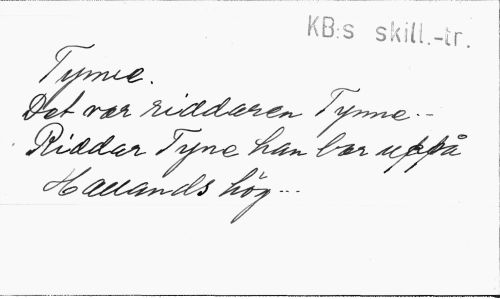 KB:s skill.-tr.
Tynne.
Det var riddaren Tynne--
Riddar Tyne han bor uppå
Hallands hög---